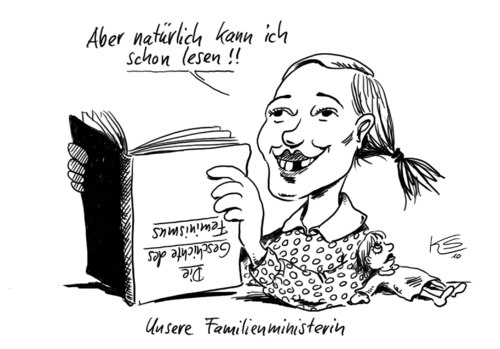 Aber natürlich kann ich
schon lesen!!
Die
Geschichte des
Feminismus
KS
10
Unsere Familienministerin